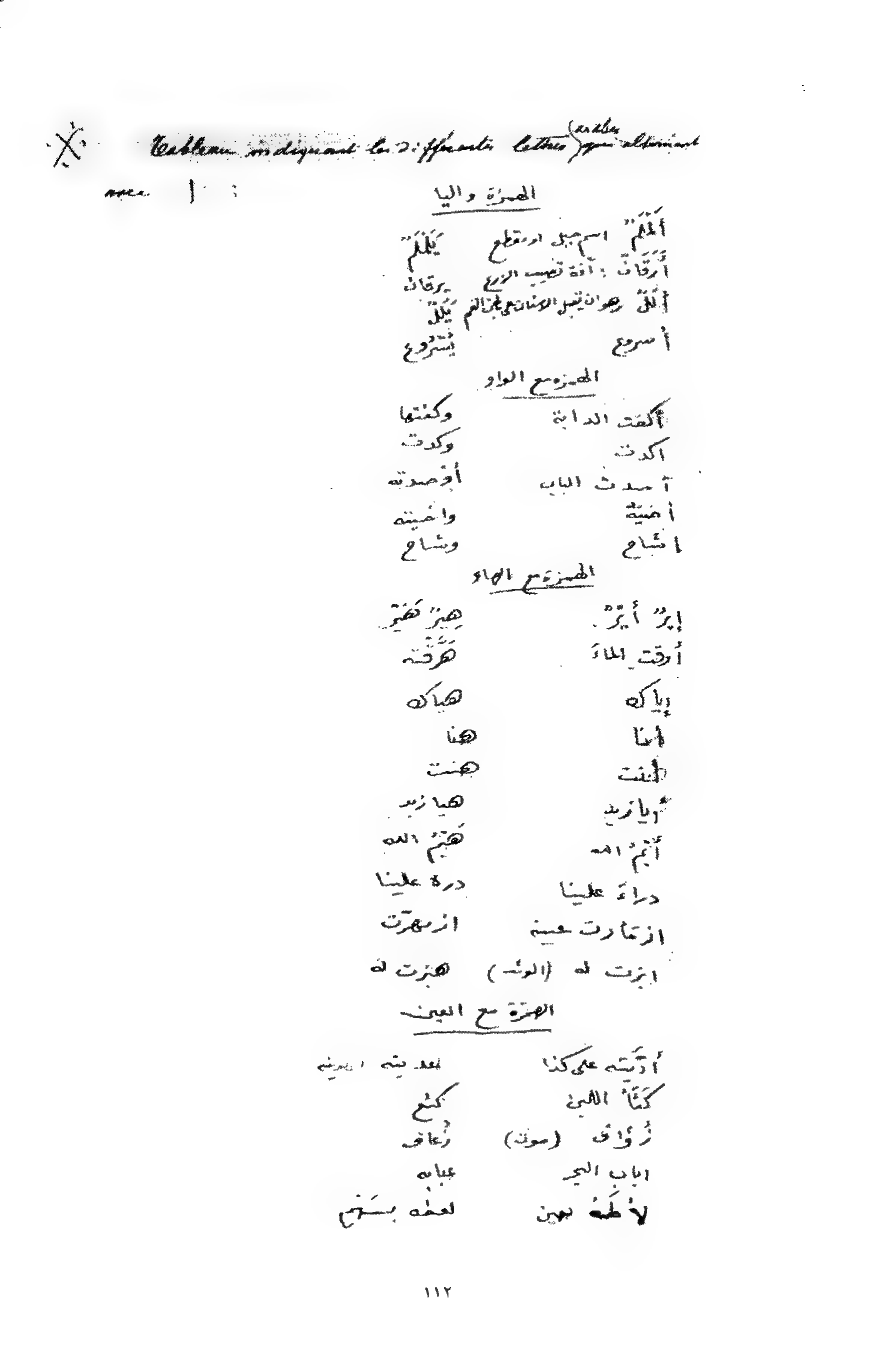 Tableau indiquant les différentes lettres (arabes) qui alternent
avec ا :
الهمزة واليا
أَلَمْلَمٌ اسم جبل او مقطع يَلَمْلَمٌ
أَرَقَانٌ : آفة تصيب الزرع يرقان
أَلَلٌ وهو ان تقبل الاسنان على باطن الفم يَلَلٌ
أسروع يُسْرُوع
الهمزة مع الواو
أكفت الدابة وكفتها
اكدت وكدت
آصدت الباب أوصدته
أخيته واخيته
اشاح وشاح
الهمزة مع الهاء
إيرٌ أَيّرٌ هِيرٌ هَيّرٌ
أرقت الماءَ هَرَقْته
إياك هياك
أنا هنا
أنت هنت
أيا زيد هيا زيد
أَيْمُ الله هَيْمُ الله
دراءَ علينا دره علينا
ازمأرت عينه ازمهرّت
ابزت له (الوثب) هبزت له
الهمزة مع العين
أدّيته على كذا عديته اعديته
كَثَأَ اللبن كثع
زُؤاف (موت) زُعاف
اباب البحر عبابه
لأطَهُ بعين لعطه بسَهْم
١١٢